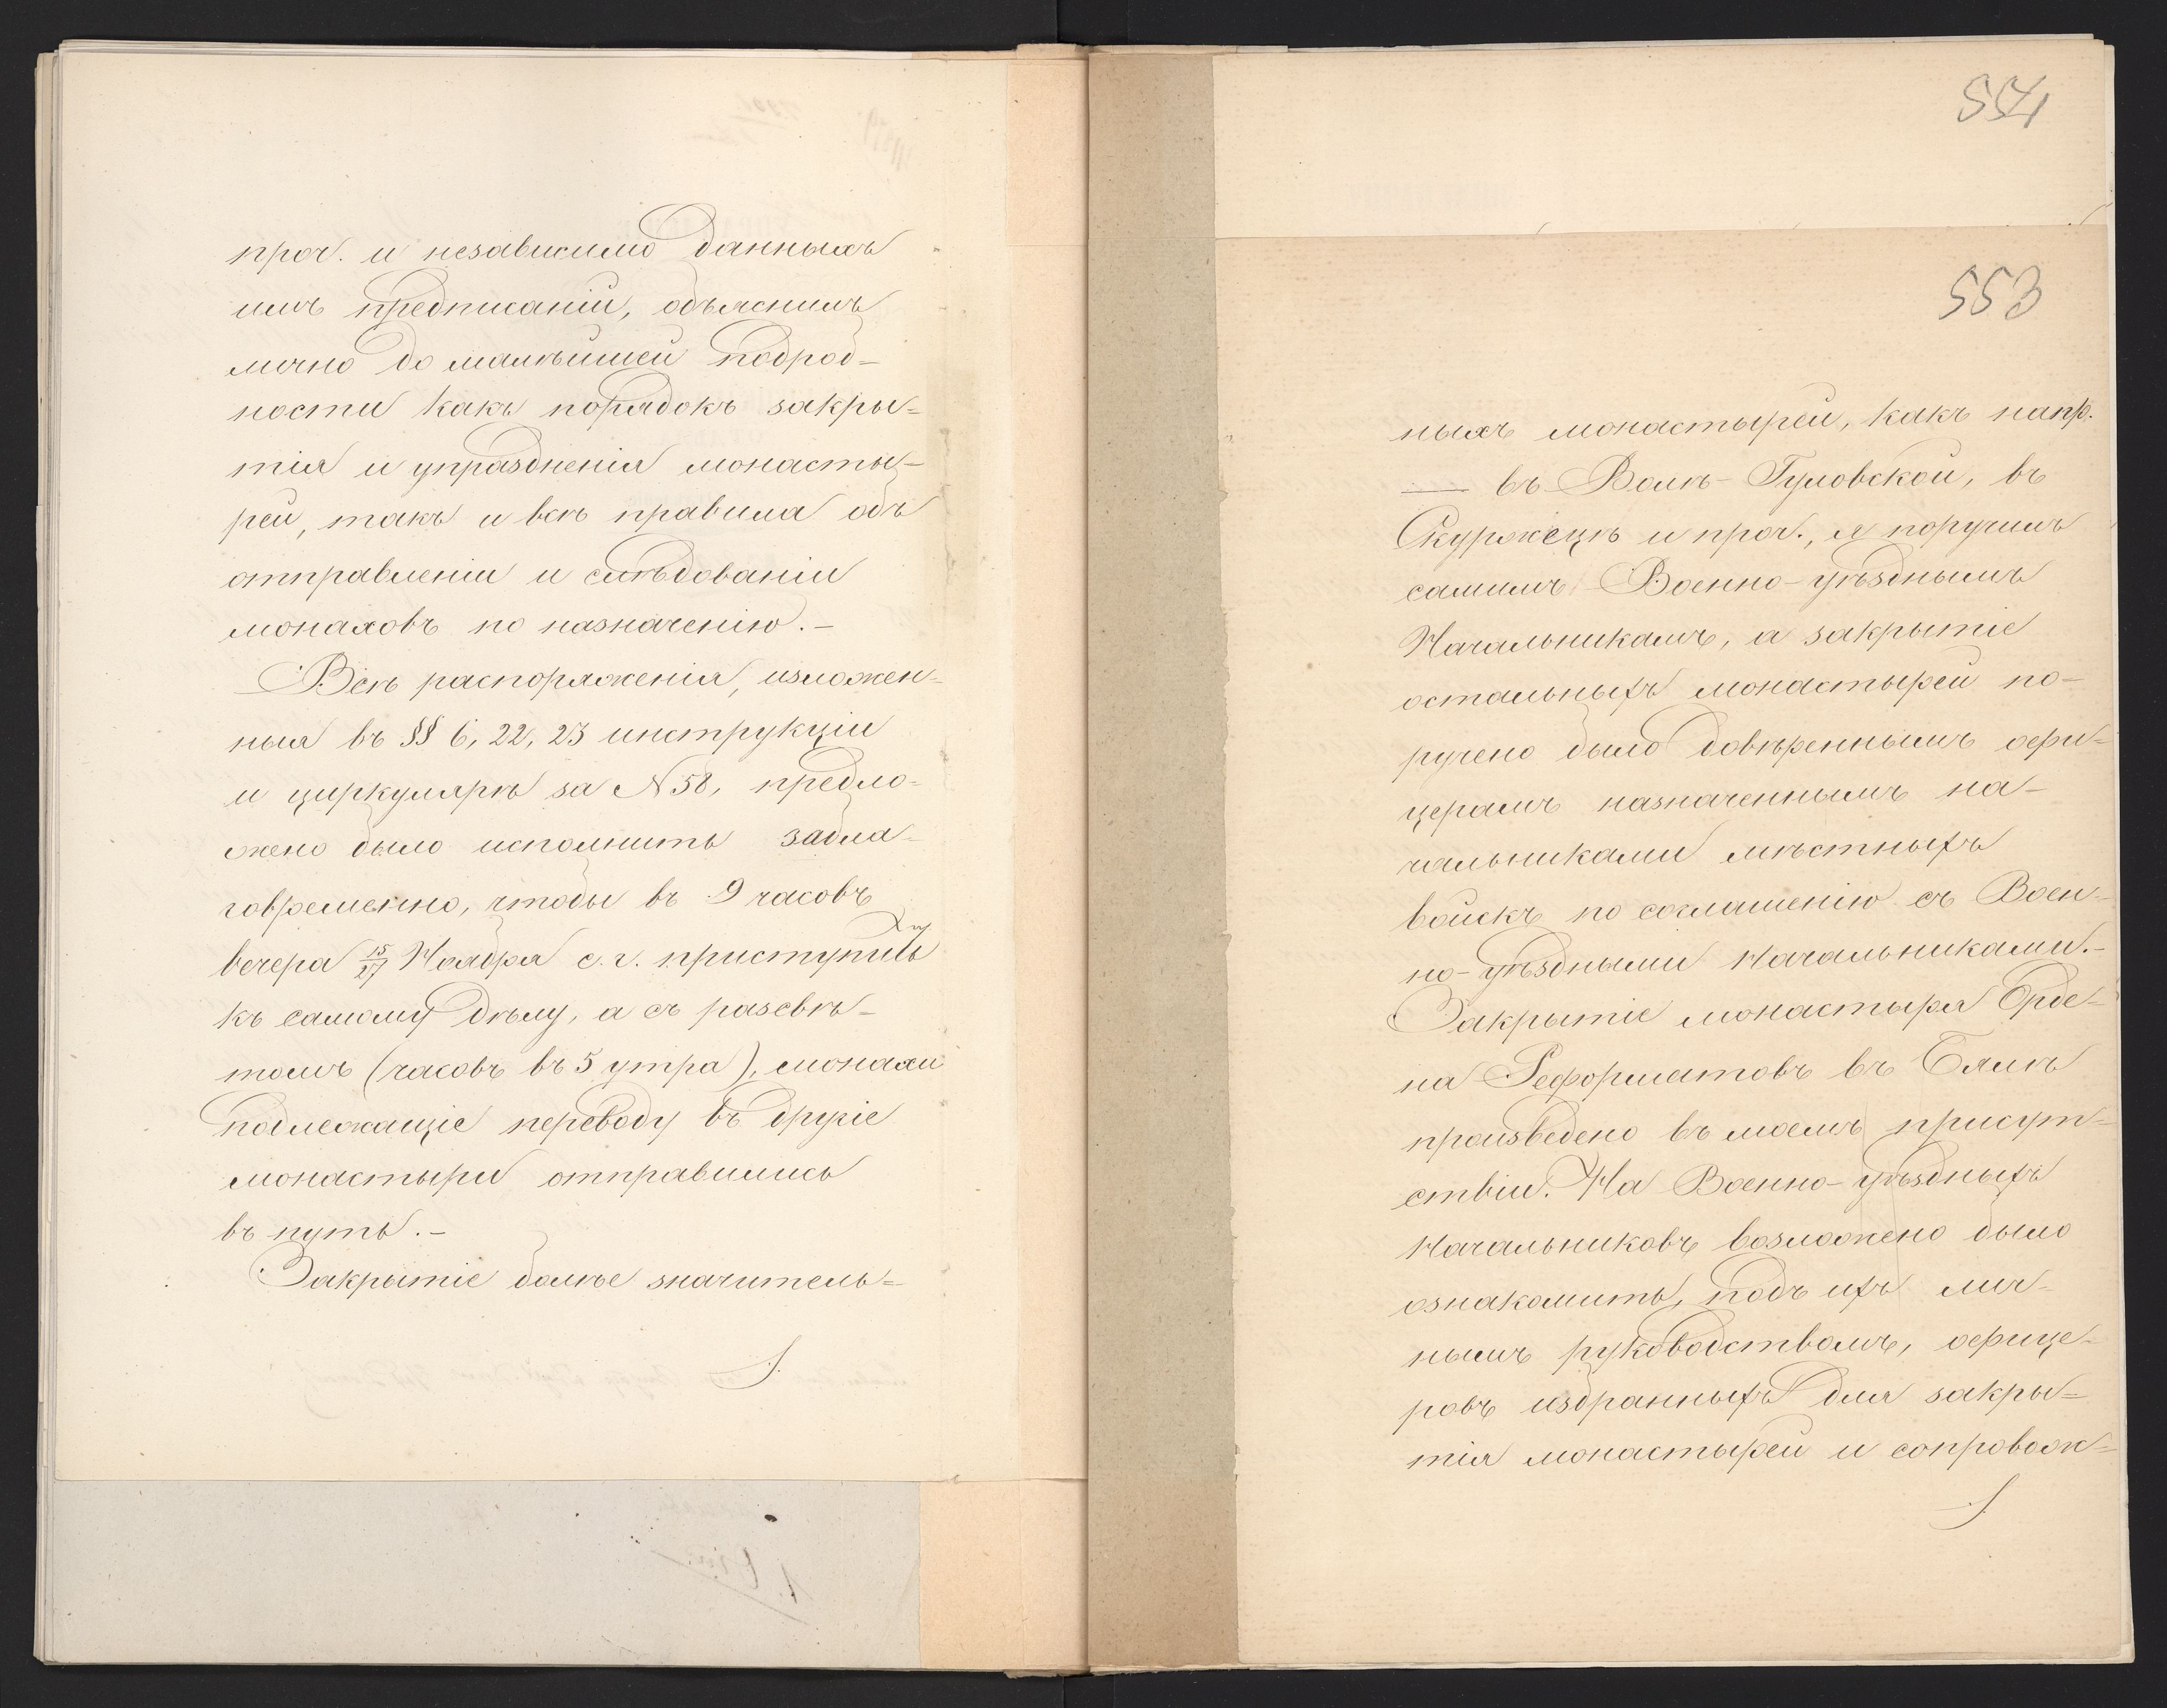 проч. и независимо данныхъ
имъ предписаній, объяснилъ
лично до малѣйшей подроб-
ности какъ порядокъ закры=
тія и упраздненія монасты-
рей, такъ и всѣ правила объ
отправленіи и слѣдованіи
монаховъ по назначенію.-
Всѣ распоряженія, изложен=
ныя въ §§ 6, 22, 23 инструкціи
и циркулярѣ за N 58, предло=
жено было исполнить забла=
говременно, чтобы въ 9 часовъ
вечера 15/27 Ноября с. г. приступить
къ самому дѣлу, а съ разсвѣ-
томъ (часовъ въ 5 утра), монахи
подлежащіе переводу въ другіе
монастыри отправились
въ путь.-
Закрытіе болѣе значитель=
554
553
ныхъ монастырей, какъ напр.
— въ Воли-Гуловской, въ
Скуржецѣ и проч., я поручилъ
самимъ Военно-уѣзднымъ
Начальникамъ, а закрытіе
остальныхъ монастырей по-
ручено было довѣреннымъ офи=
церамъ назначеннымъ на-
чальниками мѣстныхъ
войскъ по соглашенію съ Воен-
но-уѣздными Начальниками.-
Закрытіе монастыря Орде-
на Реформатовъ въ Бялѣ
произведено въ моемъ присут=
ствіи. На Военно-уѣздныхъ
Начальниковъ возложено было
ознакомить, подъ ихъ лич-
нымъ руководствомъ, офице-
ровъ избранныхъ для закры=
тія монастырей и сопровож=